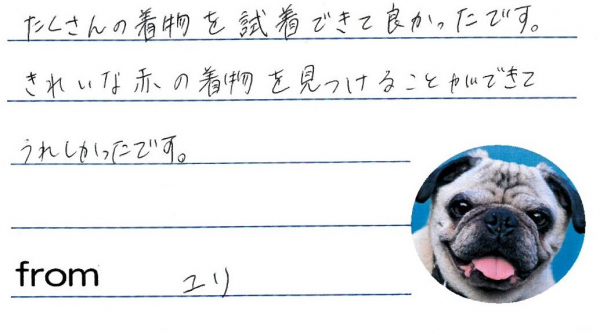 たくさんの着物を試着できて良かったです。
きれいな赤の着物を見つけることができて
うれしかったです。
from ユリ